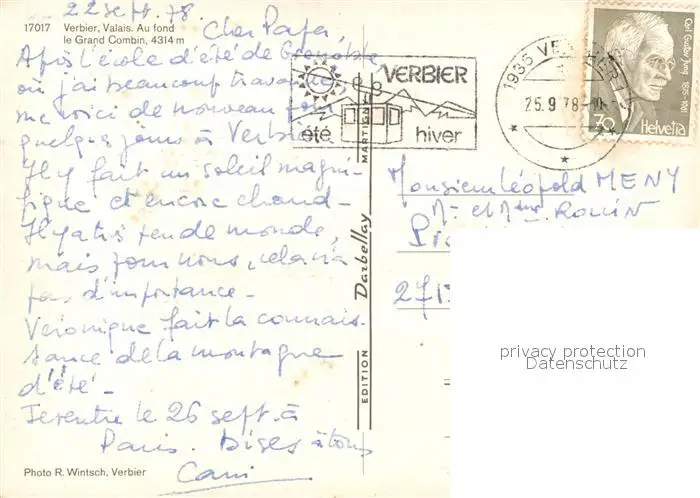 22 sept. 78.
17017 Verbier, Valais. Au fond
le Grand Combin, 4314 m
Cher Papa,
Après l'école d'été de Grenoble
où j'ai beaucoup travaillé
me voici de nouveau pour
quelques jours à Verbier
Il y fait un soleil magni-
fique et encore chaud -
Il y a très peu de monde,
mais pour nous, cela n'a
pas d'importance -
Véronique fait la connais-
sance de la montagne
d'été -
Je rentre le 26 sept. à
Paris. Bises à tous
Photo R. Wintsch, Verbier
EDITION Darbellay MARTIGNY
VERBIER
été hiver
1935 VERBIER
25.9.78-10
Carl Gustav Jung 1875-1961
70 Helvetia
Monsieur Léopold MENY
Mr et Mme ROLLIN
271
privacy protection
Datenschutz